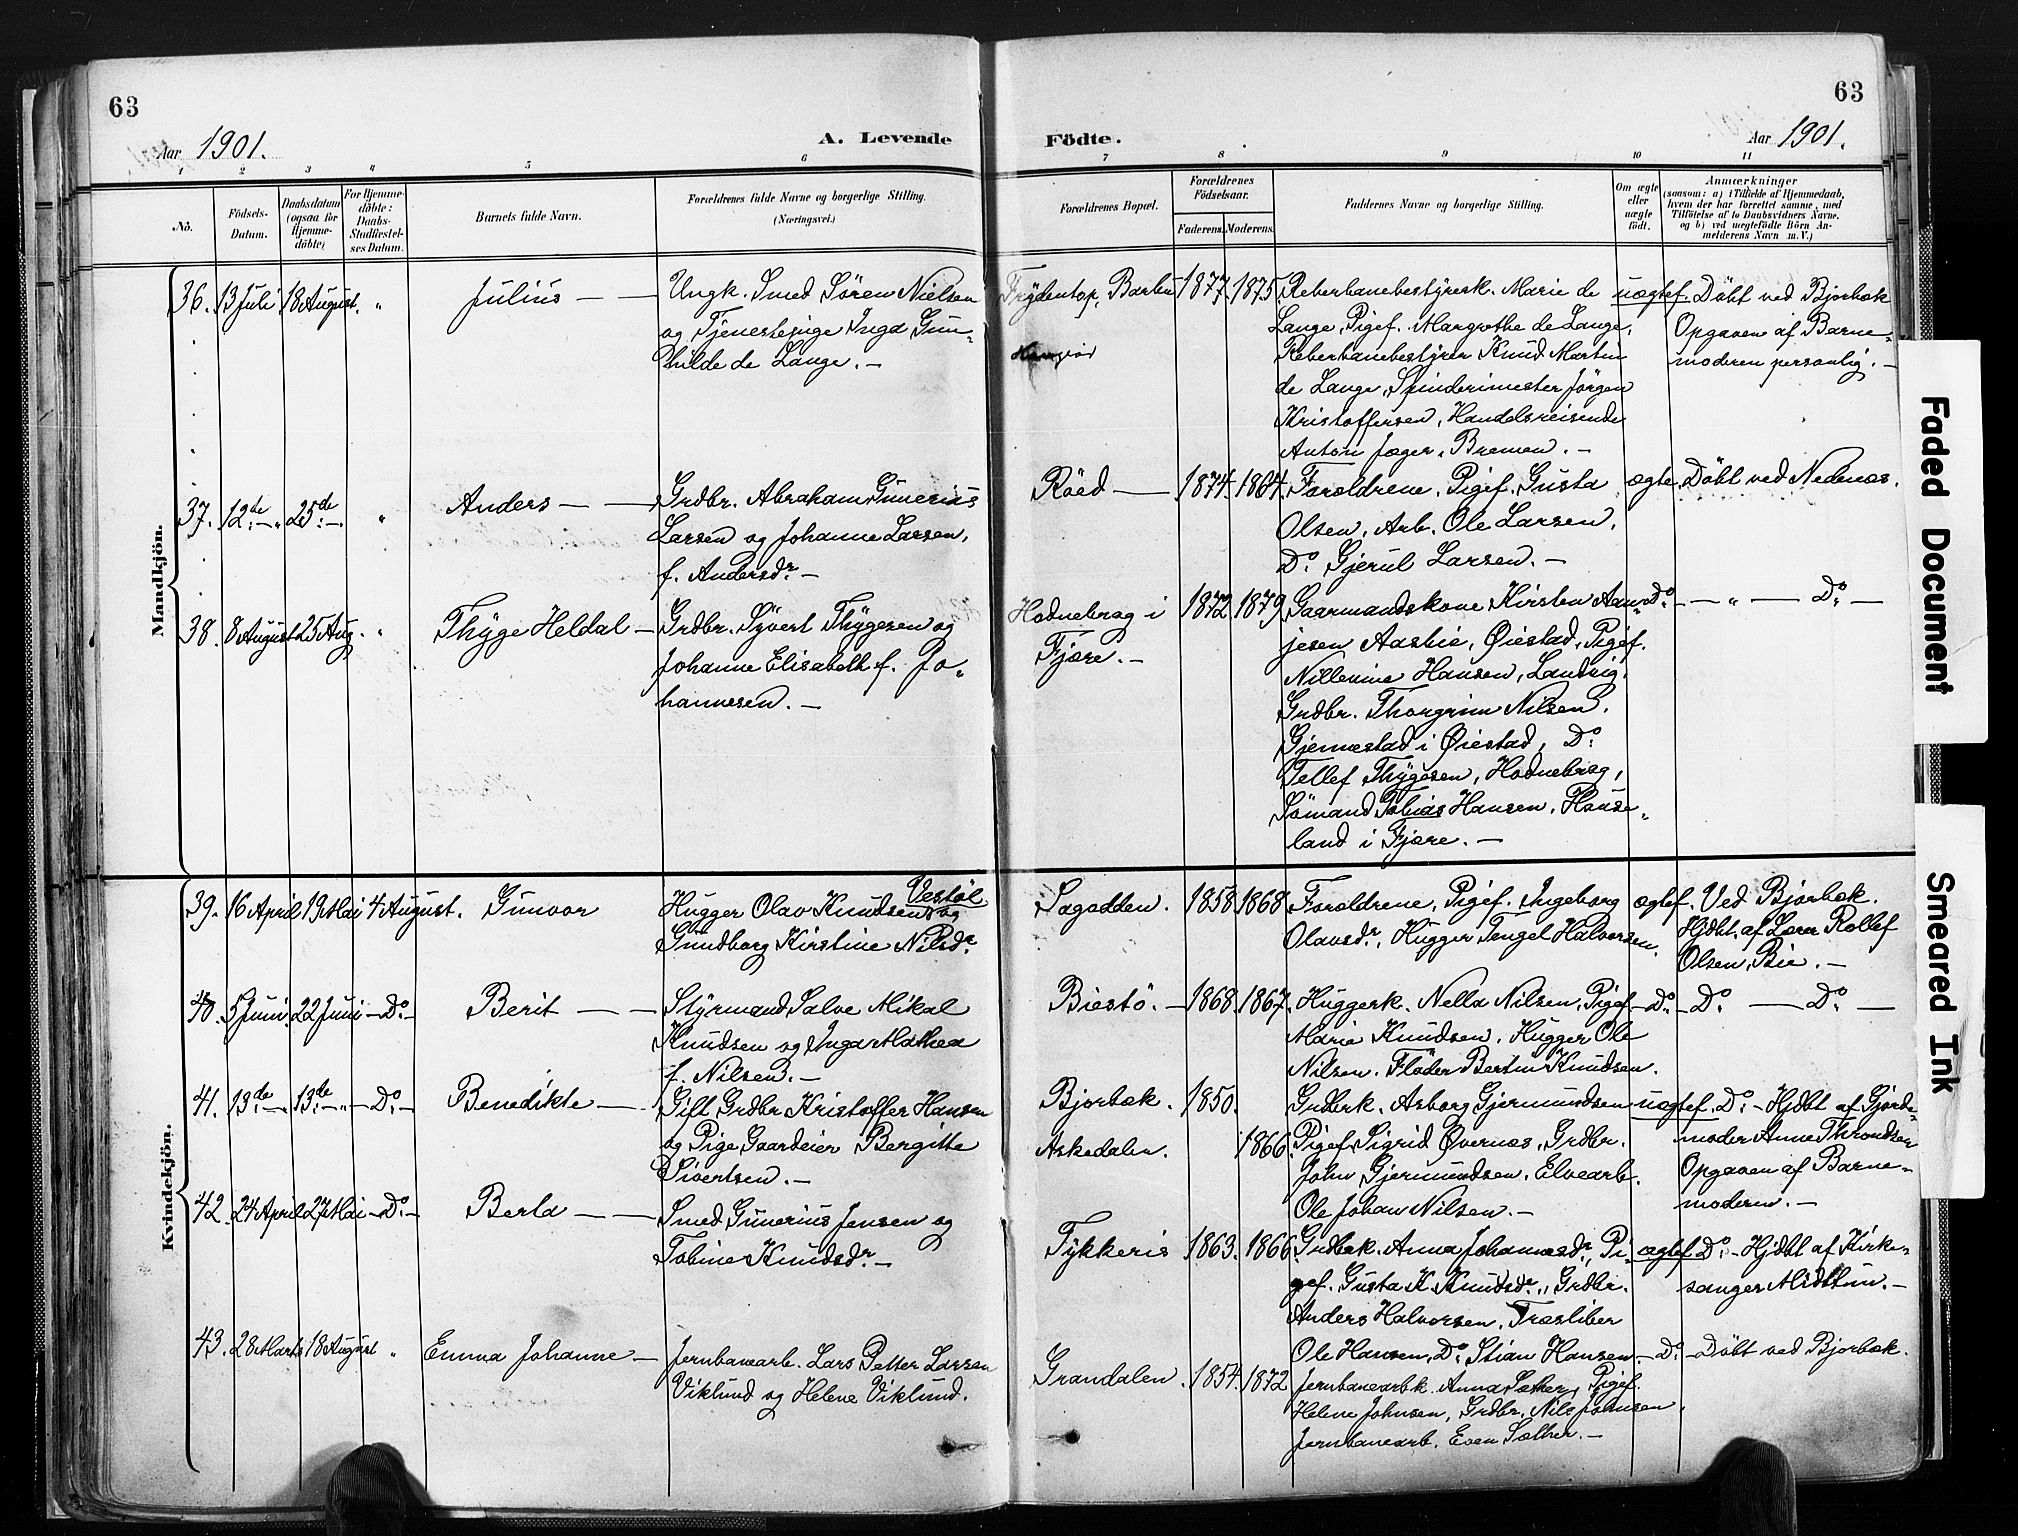 63
63
Aar 1901.
A. Levende
Födte.
Aar 1901.
1 2 3 4 5 6 7 8 9 10 11
No.
Födsels-
Datum.
Daabsdatum
(ogsaa for
Hjemme-
döbte)
For Hjemme-
döbte:
Daabs-
Stadfæstel-
ses Datum.
Barnets fulde Navn.
Forældrenes fulde Navne og borgerlige Stilling.
(Næringsvei.)
Forældrenes Bopæl.
Forældrenes
Födselsaar.
Faderens. Moderens.
Faddernes Navne og borgerlige Stilling.
Om ægte
eller
uægte
födt.
Anmærkninger
(saasom: a) i Tilfælde af Hjemmedaab,
hvem der har forrettet samme, med
Tilföielse af to Daabsvidners Navne,
og b) ved uægtefödte Börn An-
melderens Navn m. V.)
Mandkjön.
36. 13 Juli 18 August. " Julius — —
Ungk. Smed Sören Nielsen
og Tjenestepige Inga Gun-
hilde de Lange. —
Frydentop, Barbu 1877. 1875.
Reberbanebestyrerk. Marie de
Lange, Pigef. Margrethe de Lange,
Reberbanebestyrer Knud Martin
de Lange, Spinderimester Jörgen
Kristoffersen, Handelsreisende
Anton Jæger, Bremen. —
uægtef. Döbt ved Bjorbæk
Opgaven af Barne-
moderen personlig. —
37. 12te — " 25de — " Anders — —
Grdbr. Abraham Gunerius
Larsen og Johanne Larsen,
f. Andersdr. —
Röed — 1874. 1864.
Forældrene, Pigef. Gusta
Olsen, Arb. Ole Larsen,
Do. Gjerul Larsen. —
ægte. Döbt ved Nedenæs.
38. 8 August 25 Aug. " Thyge Heldal —
Grdbr. Syvert Thygesen og
Johanne Elisabeth f. Jo-
hannesen. —
Hodnebrog i
Fjære. —
1872. 1879.
Gaarmandskone Kirsten Aan-
jesen Aasbie, Øiestad, Pigef.
Nillevine Hansen, Landvig,
Grdbr. Thorgrim Nilsen,
Gjennestad i Øiestad, Do.
Tellef Thygesen, Hodnebrog,
Sömand Tobias Hansen,
land i Fjære. —
Do. — — " — Do. —
Kvindekjön.
39. 16 April 19 Mai 4 August. Gunvor
Hugger Olav Knudsen Vestöl og
Gundborg Kirstine Nilsdr.
Sagodden. 1858. 1868.
Forældrene, Pigef. Ingeborg
Olavsdr., Hugger Tengel Halvorsen.
ægtef. Ved Bjorbæk.
Hjdbt. af Lærer Rollef
Olsen, Bie. —
40. 5 Juni. 22 Juni — Do. — Berit — —
Styrmand Salve Mikal
Knudsen og Inga Mathea
f. Nilsen. —
Biestö. — 1868. 1867.
Huggerk. Nella Nilsen, Pigef.
Marie Knudsen, Hugger Ole
Nilsen, Flöder Bertin Knudsen.
— Do. — Do. — Do. —
41. 13de — " 13de — " — Do. — Benedikte —
Gift Grdbr. Kristoffer Hansen
og Pige Gaardeier Bergitte
Sivertsen. —
Bjorbæk. 1850.
Askedalen. 1866.
Grdbrk. Asborg Gjermundsen
Pigef. Sigrid Øvernæs, Grdbr.
John Gjermundsen, Elvearb.
Ole Johan Nilsen. —
uægtef. Do. — Hjdbt af Gjorde-
moder Anne Throndsen
Opgaven af Barne-
moderen. —
42. 24 April 27 Mai — Do. — Berta — —
Smed Gunerius Jensen og
Tobine Knudsdr. —
Tykkeris 1863. 1866.
Grdbek. Anna Johannesdr., Pi-
gef. Gusta K. Knudsdr., Grdbr.
Anders Halvorsen, Træsliber
Ole Hansen, Do. Stian Hansen.
ægtef. Do. — Hjdbt af Kirke-
sanger Midttun. —
43. 28 Marts 18 August " Emma Johanne —
Jernbanearb. Lars Petter Larsen
Viklund og Helene Viklund.
Grandalen. 1854. 1872
Jernbanearbk. Anna Sæther, Pigef.
Helene Johnsen, Grdbr. Nils Johnsen,
Jernbanearb. Even Sæther. —
— Do. — Döbt ved Bjorbæk.
Faded Document
Smeared Ink